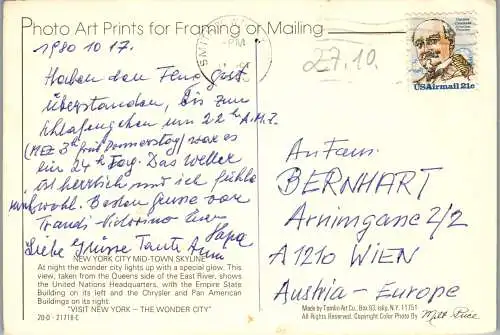 Photo Art Prints for Framing or Mailing
1980 10 17.
Haben den Flug gut
überstanden, bis zum
Schlafengehen um 22 h A.M.T.
(MEZ 3h früh Donnerstag) war es
ein 24 h Tag. Das Wetter
ist herrlich und ich fühle
mich wohl. Besten Grüsse von
Trandi
Papa
Liebe Grüsse Tante Anni
NEW YORK CITY MID-TOWN SKYLINE
At night the wonder city lights up with a special glow. This
view, taken from the Queens side of the East River, shows
the United Nations Headquarters, with the Empire State
Building on its left and the Chrysler and Pan American
Buildings on its right.
"VISIT NEW YORK – THE WONDER CITY"
20-D - 21718-C
PM
27.10.
USAirmail 21c
An Fam.
BERNHART
Arnimgasse 2/2
A 1210 WIEN
Austria - Europe
Made by Tomko Art Co., Box 93, Islip, N.Y. 11751
All Rights Reserved. Copyright Color Photo By Milt Price